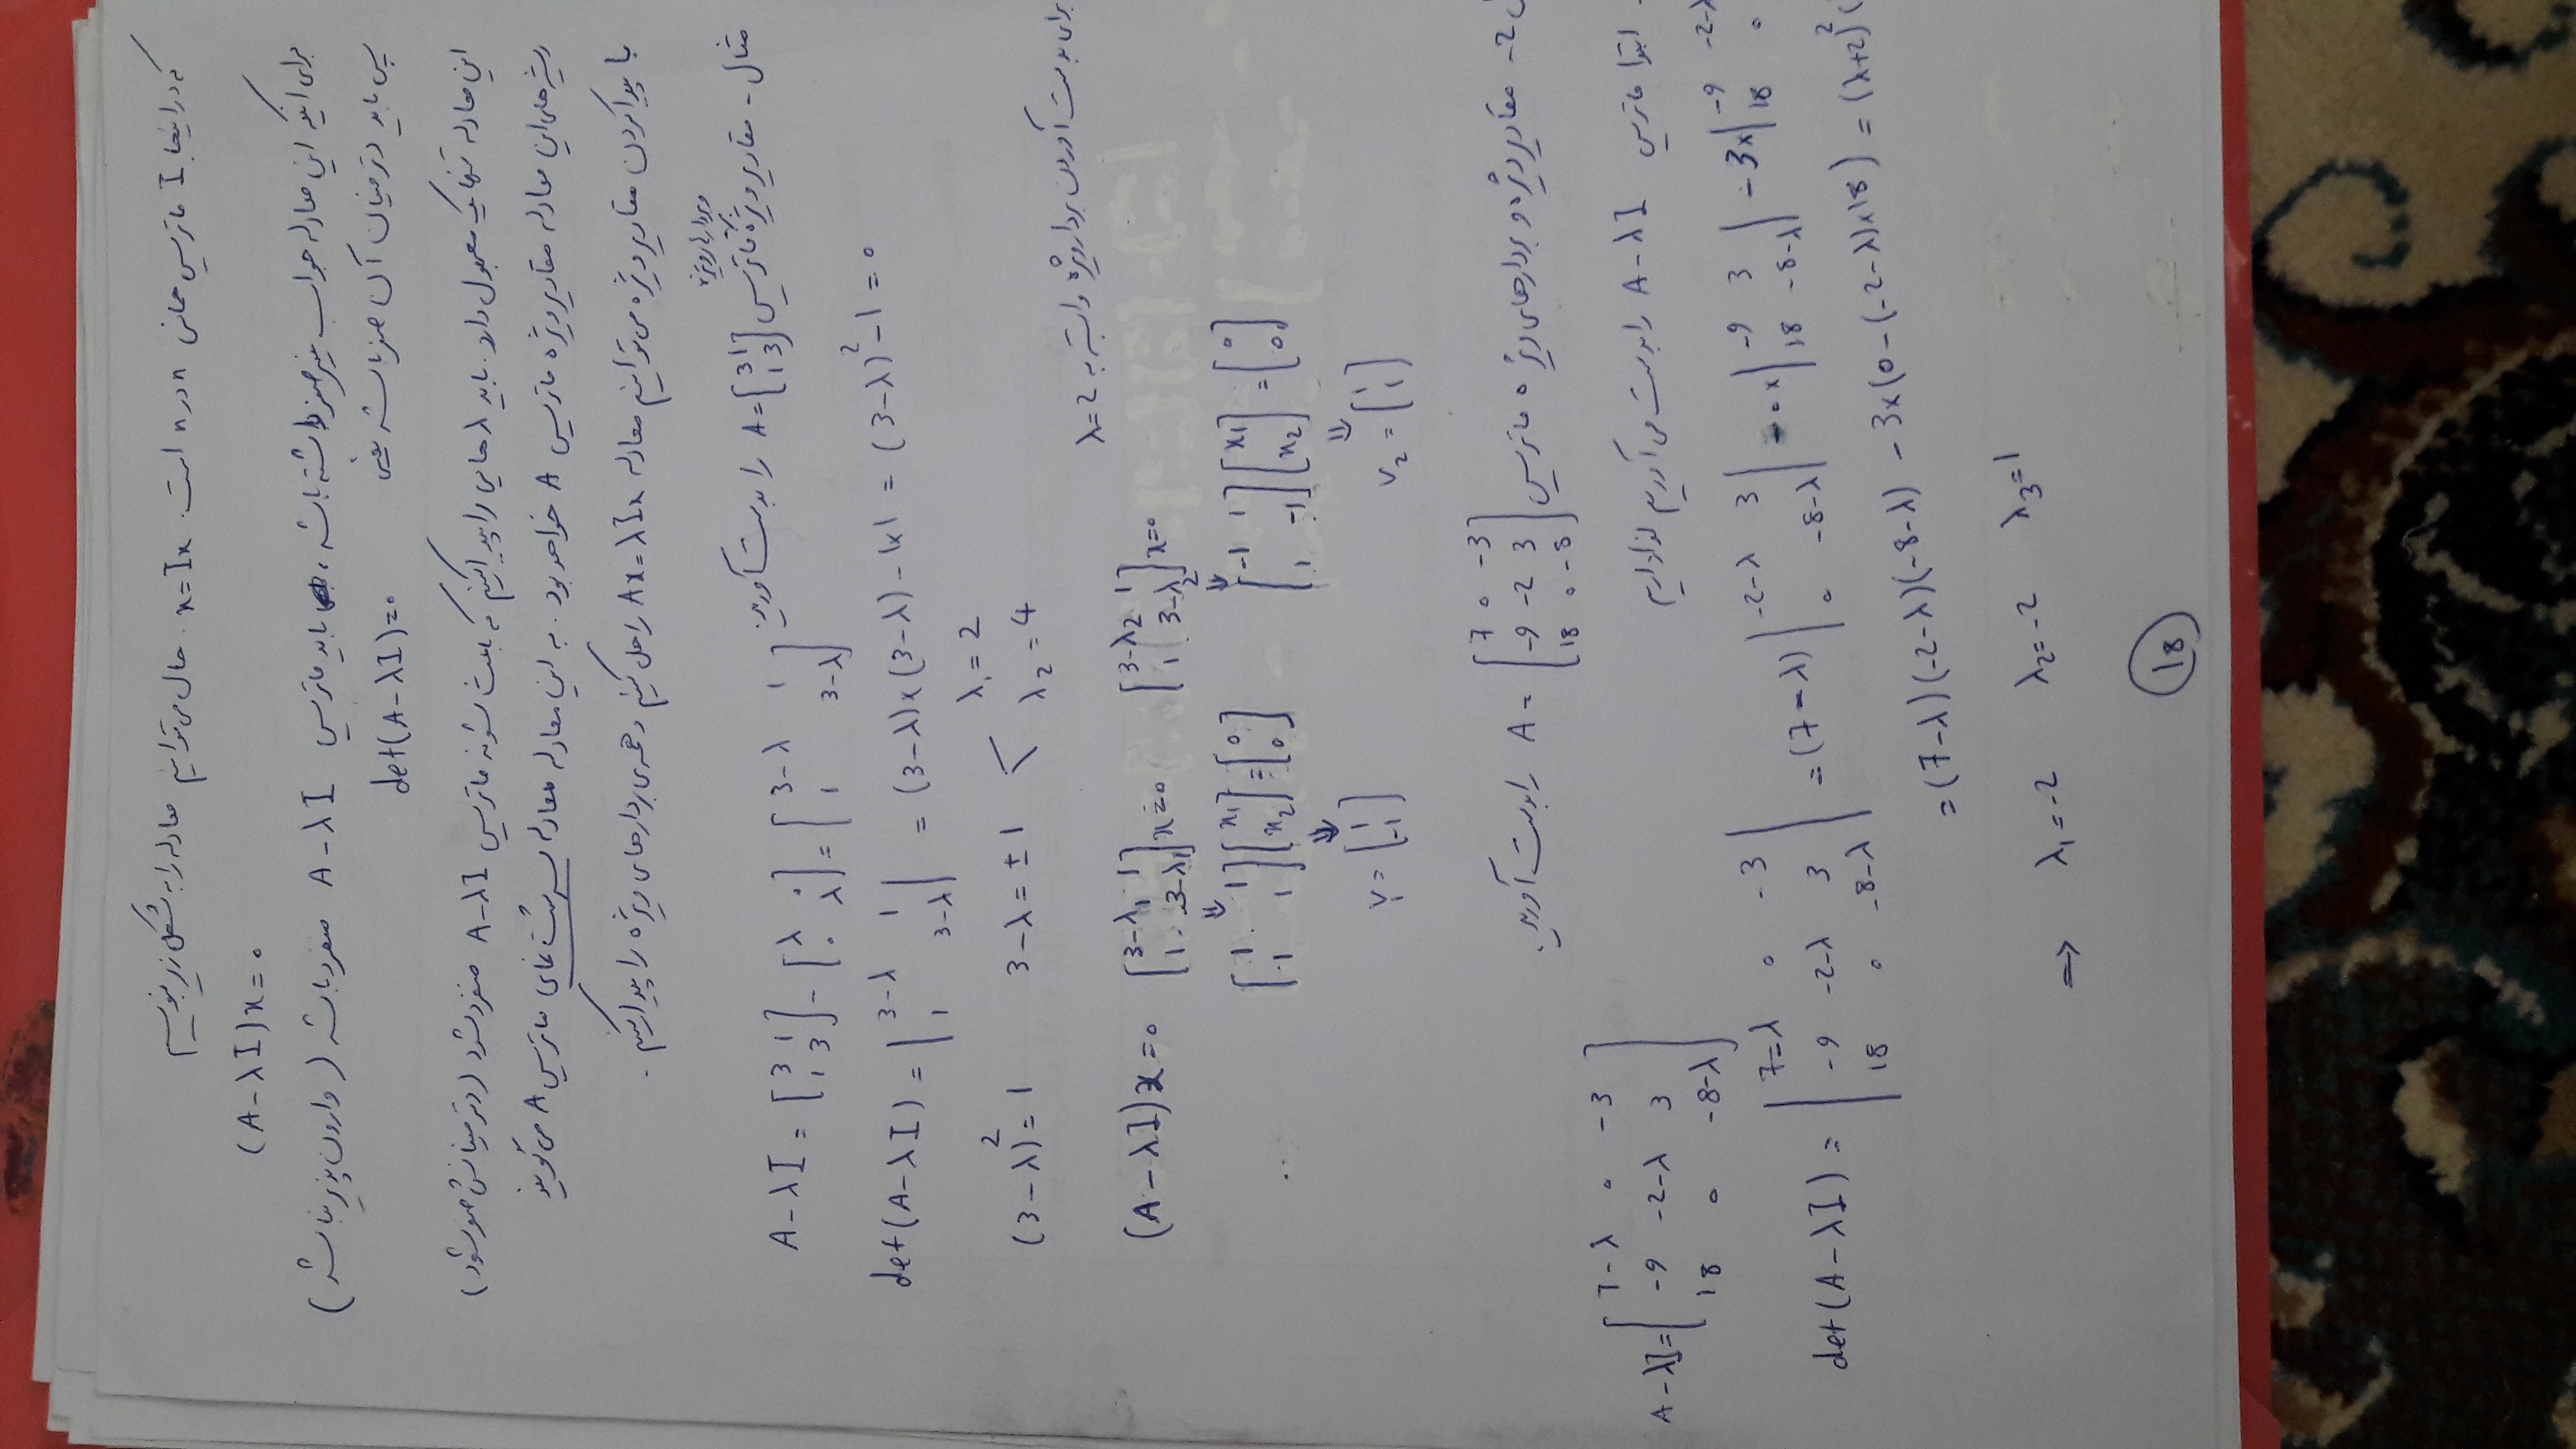 که در اینجا I ماتریس همانی n در n است. x=Ix. حال می‌توانیم معادله را به شکل زیر بنویسیم
(A-λI)x=0
برای اینکه این معادله جواب غیرصفر داشته باشد، باید ماتریس A-λI منفرد باشد (وارون پذیر نباشد)
پس باید دترمینان آن صفر باشد یعنی det(A-λI)=0
این معادله تنها یک مجهول دارد. باید λهایی را پیدا کنیم که باعث شوند ماتریس A-λI منفرد شود (دترمینانش صفر شود)
ریشه‌های این معادله مقادیر ویژه ماتریس A خواهد بود. به این معادله، معادله سرشت نمای ماتریس A می‌گویند
با پیدا کردن مقادیر ویژه می‌توانیم معادله Ax=λIx را حل کنیم و همه‌ی بردارهای ویژه را پیدا کنیم.
مثال- مقادیر ویژه و بردارهای ویژه ماتریس A=[3 1; 1 3] را بدست آورید.
A-λI = [3 1; 1 3] - [λ 0; 0 λ] = [3-λ 1; 1 3-λ]
det(A-λI) = |3-λ 1; 1 3-λ| = (3-λ)×(3-λ)-1×1 = (3-λ)²-1=0
(3-λ)²=1 3-λ=±1 < λ₁=2 λ₂=4
برای بدست آوردن بردار ویژه وابسته به λ=2
(A-λI)x=0 [3-λ₁ 1; 1 3-λ₁]x=0 [3-λ₂ 1; 1 3-λ₂]x=0
⇓ ⇓
[1 1; 1 1][x₁; x₂]=[0; 0] [-1 1; 1 -1][x₁; x₂]=[0; 0]
⇓ ⇓
v₁=[1; -1] v₂=[1; 1]
-2 مقادیر ویژه و بردارهای ویژه ماتریس A=[7 0 -3; -9 -2 3; 18 0 -8] را بدست آورید.
ابتدا ماتریس A-λI را بدست می‌آوریم لذا داریم
A-λI=[7-λ 0 -3; -9 -2-λ 3; 18 0 -8-λ]
det(A-λI) = |7-λ 0 -3; -9 -2-λ 3; 18 0 -8-λ| = (7-λ)|-2-λ 3; 0 -8-λ| - 0×|-9 3; 18 -8-λ| - 3×|-9 -2-λ; 18 0
=(7-λ)(-2-λ)(-8-λ) - 3×(0-(-2-λ)×18) = (λ+2)²(
⇒ λ₁=-2 λ₂=-2 λ₃=1
18